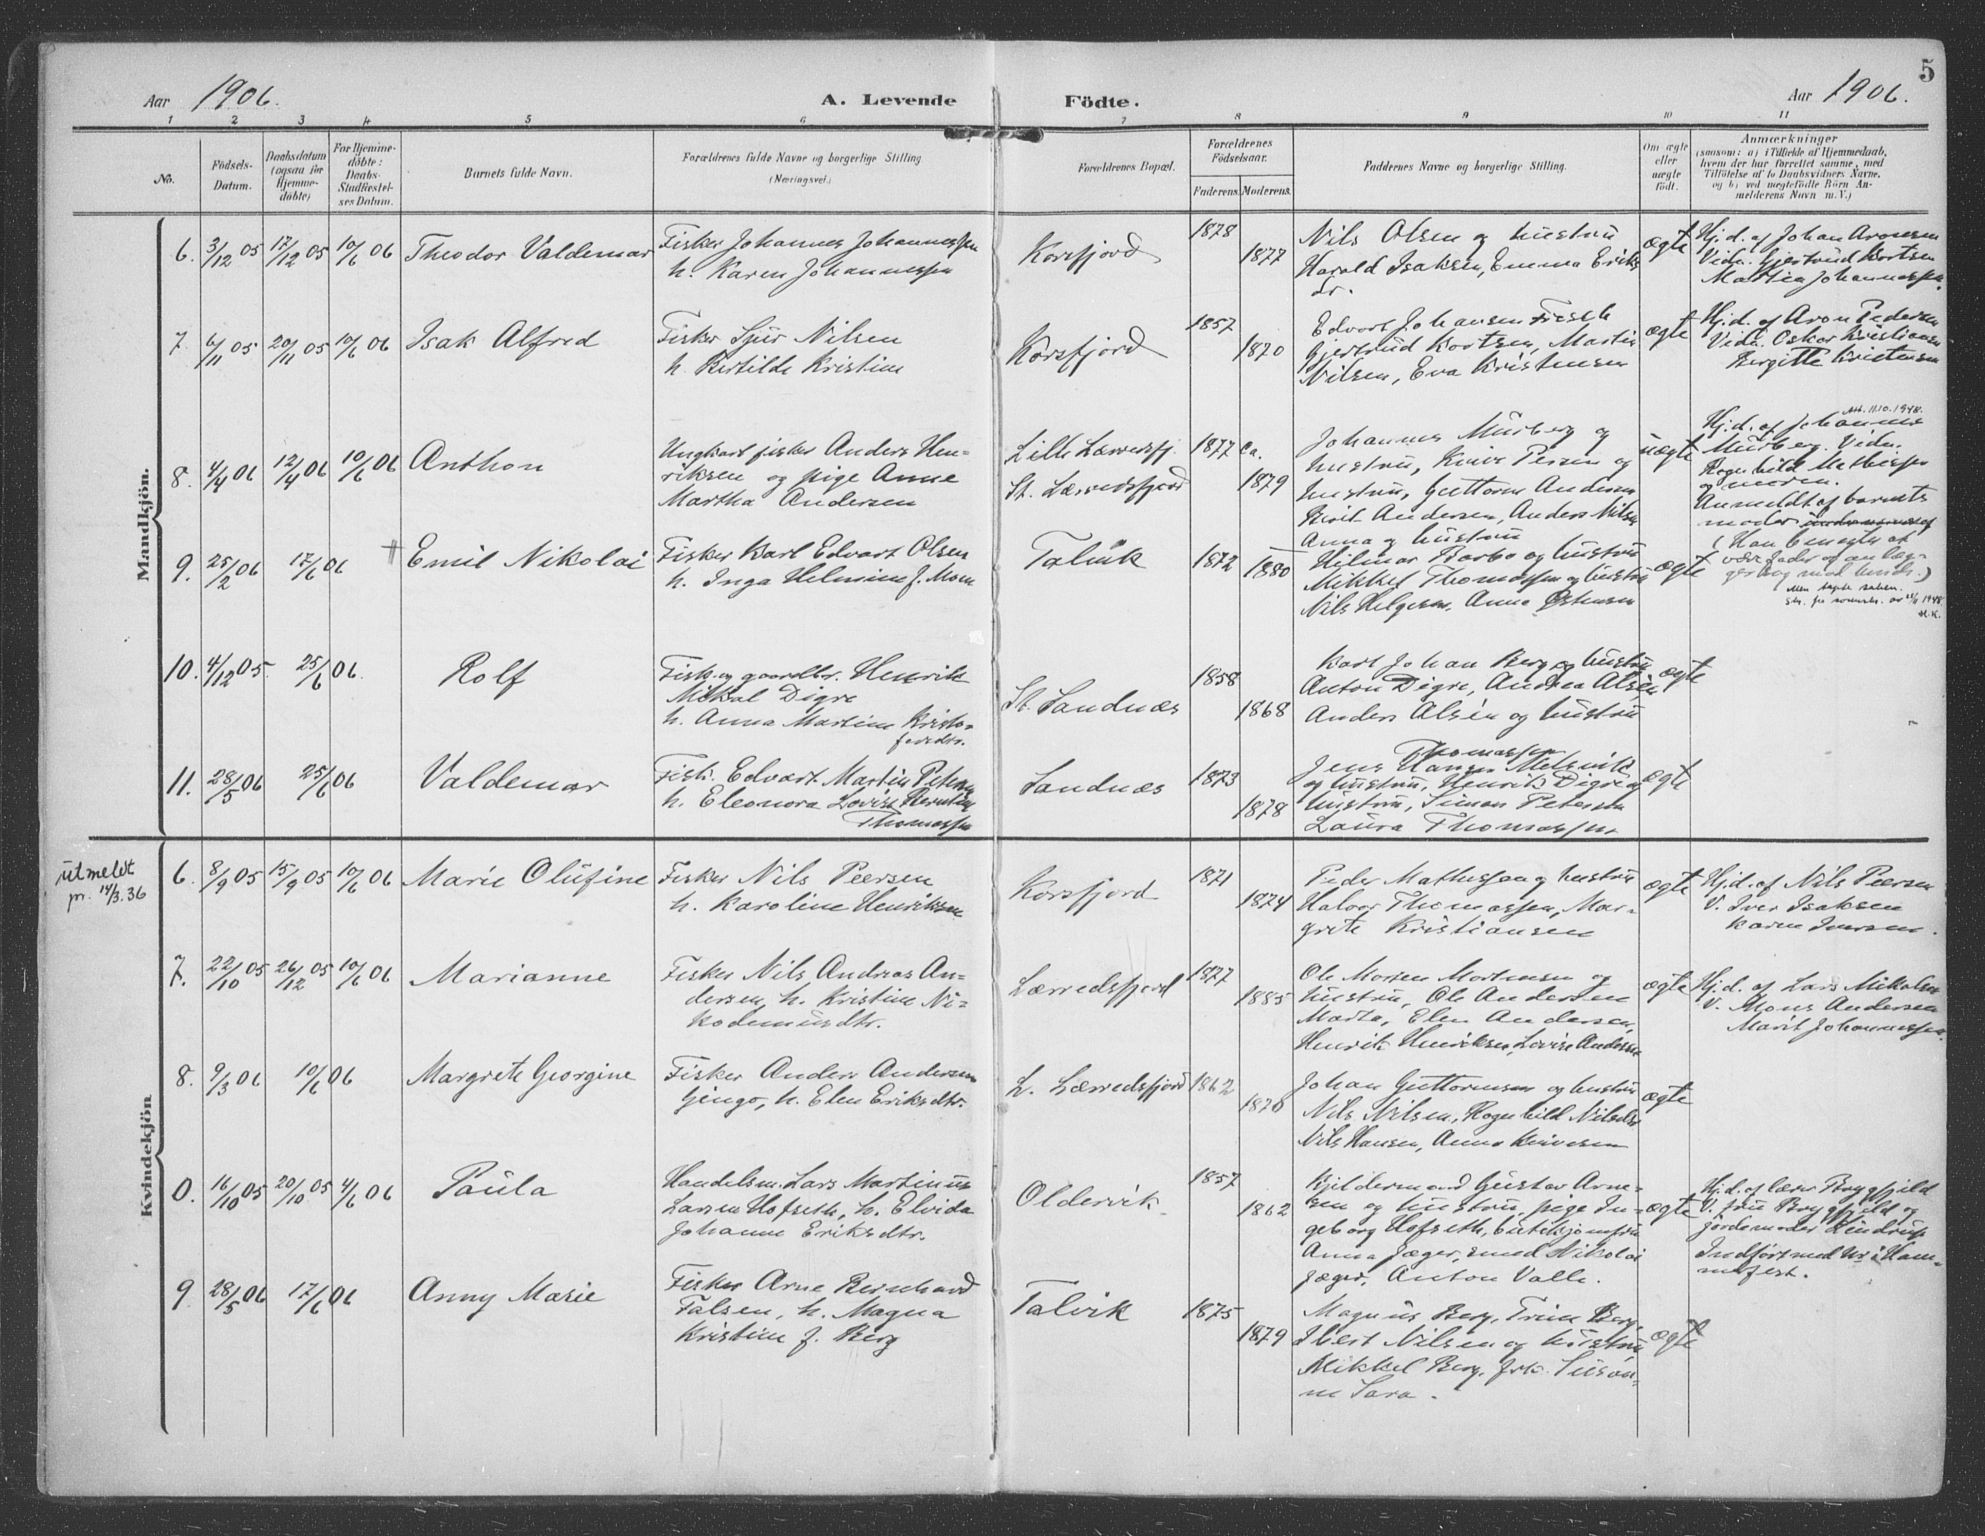 5
Aar 1906. A. Levende Födte. Aar 1906.
1 2 3 4 5 6 7 8 9 10 11
No.
Födsels-
Datum.
Daabsdatum
(ogsaa for
Hjemme-
döbte)
For Hjemme-
döbte:
Daabs-
Stadfæstel-
ses Datum.
Barnets fulde Navn.
Forældrenes fulde Navne og borgerlige Stilling
(Næringsvei.)
Forældrenes Bopæl.
Forældrenes
Födselsaar.
Faderens. Moderens.
Faddernes Navne og borgerlige Stilling.
Om ægte
eller
uægte
födt.
Anmærkninger
(saasom: a) i Tilfælde af Hjemmedaab,
hvem der har forrettet samme, med
Tilföielse af to Daabsvidners Navne,
og b) ved uægtefödte Börn An-
melderens Navn m. V.)
Mandkjön.
6. 3/12 05 17/12 05 10/6 06 Theodor Valdemar
Fisker Johannes Johannessen
h. Karen Johannessen
Korsfjord
1878
1877
Nils Olsen og hustru
Harald Isaksen, Emma Eriks
dr.
ægte
Hj.d. af Johan Aronsen
Vidn. Gjertrud Kortsen
Mathea Johannessen.
7. 6/11 05 20/11 05 10/6 06 Isak Alfred
Fisker Sjur Nilsen
h. Bertilde Kristine
Korsfjord
1857
1870
Edvart Johansen Fisch
Gjertrud Kortsen, Martin
Nilsen, Eva Kristensen
ægte
Hj.d. af Aron Pedersen
Vidn. Oskar Kristiansen
Bergitte Kristensen
8. 4/4 06 12/4 06 10/6 06 Anthon
Ungkarl fisker Anders Hen-
riksen og pige Anne
Martha Andersen
Lille Lærredsfj.
St. Lærredsfjord
1877 ca.
1879
Johannes Murberg og
hustru, Knive Persen og
hustru, Guttorm Andersen
Berit Andersen, Anders Nilsen
Anna og hustru
uægte
Att. 11.10.1948.
Hj.d. af Johannes
Murberg. Vidn.
Ragnhild Mathissen
og moren.
Anmeldt af barnets
moder
(Han benegter at
være fader og anlæg-
ger sag mod hende.)
Men tapte saken.
9. 25/2 06 17/6 06 Emil Nikolai
Fisker Karl Edvart Olsen
h. Inga Helmine f. Mom
Talvik
1872
1880
Hilmar Barbo og hustru
Mikkel Thomassen og hustru
Nils Helgesen, Anna Østensen
ægte
10. 4/12 05. 25/6 06. Rolf
Fisk. og gaardbr. Henrik
Mikal Digre
h. Anna Martine Kristo-
fersdtr.
St. Sandnæs
1858
1868
Karl Johan Berg og hustru
Anton Digre, Andrea Alsén
Anders Alsén og hustru
ægte
11. 28/5 06 25/6 06 Valdemar
Fisk. Edvart Martin Petersen
h. Eleonora Lovise Berntine
Thomassen
Sandnæs
1873
1878
Thomassen
Jens Hansen Melsvik
og hustru, Henrik Digre og
hustru, Simon Petersen
Laura Thomassen
ægte
Kvindekjön
utmeldt
pr. 14/3.36
6. 8/9 05 15/9 05 10/6 06 Marie Olufine
Fisker Nils Peersen
h. Karoline Henriksen
Korsfjord
1871
1874
Peder Mathissen og hustru
Halvor Thomassen, Mar-
grete Kristiansen
ægte
Hj.d. af Nils Peersen
V. Iver Isaksen
Karen Iversen.
7. 22/10 05 26/12 05 10/6 06 Marianne
Fisker Nils Andreas An-
dersen, h. Kristine Ni-
kodemusdtr.
Lærredsfjord
1877
1885
Ole Morten Mortensen og
hustru, Ole Andersen
Marta, Elen Andersen,
Henrik Henriksen, Lovise Andersen
ægte
Hj.d. af Lars Mikalsen
V. Mons Andersen
Marit Johannessen.
8. 9/3 06 10/6 06 Margrete Georgine
Fisker Anders Andersen
Gjengo, h. Elen Eriksdtr.
L. Lærredsfjord
1862
1870
Johan Guttormsen og hustru
Nils Nilsen, Ragnhild Nilsdtr
Nils Hansen, Anna Knivesen
ægte
0. 16/10 05 20/10 05 4/6 06 Paula
Handelsm. Lars Martinus
Larsen Hofseth, h. Elvida
Johanne Eriksdtr.
Oldervik.
1857
1862
Kjildermand Gustav Arne-
sen og hustru, pige In-
geborg Hofseth, butikjomfru
Anna Jæger, smed Nikolai
Jæger, Anton Valle.
ægte
Hj.d. af læge Brygfjeld
V. fru Brygfjeld og
jordemoder Lindrup
Indført med nr i Ham-
merfest.
9 28/5 06 17/6 06 Anny Marie
Fisker Arne Bernhard
Falsen, h. Magna
Kristine f. Berg
Talvik
1875
1879
Magnus Berg, Trine Berg,
Ibert Nilsen og hustru
Mikkel Berg, frk. Susan-
ne Sara.
ægte